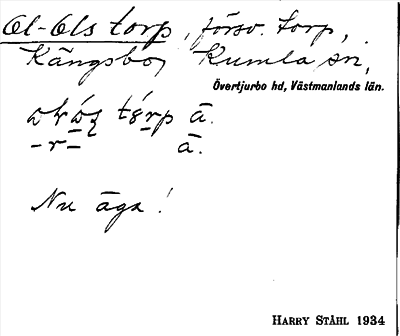 Ol-Ols torp, försv. torp,
Kängsbo, Kumla sn,
Övertjurbo hd, Västmanlands län.
tórp ā.
ā.
Nu äga!
Harry Ståhl 1934